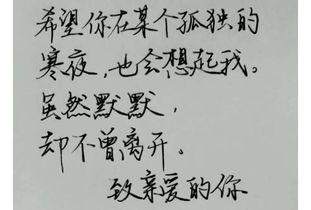 希望你在某个孤独的
寒夜，也会想起我。
虽然默默，
却不曾离开。
致亲爱的你